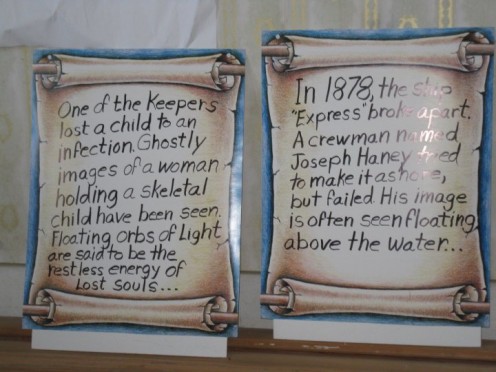 One of the Keepers
lost a child to an
infection. Ghostly
images of a woman
holding a skeletal
child have been seen.
Floating orbs of Light
are said to be the
restless energy of
Lost souls...
In 1878, the ship
"Express" broke apart.
A crewman named
Joseph Haney tried
to make it ashore,
but failed. His image
is often seen floating
above the water...